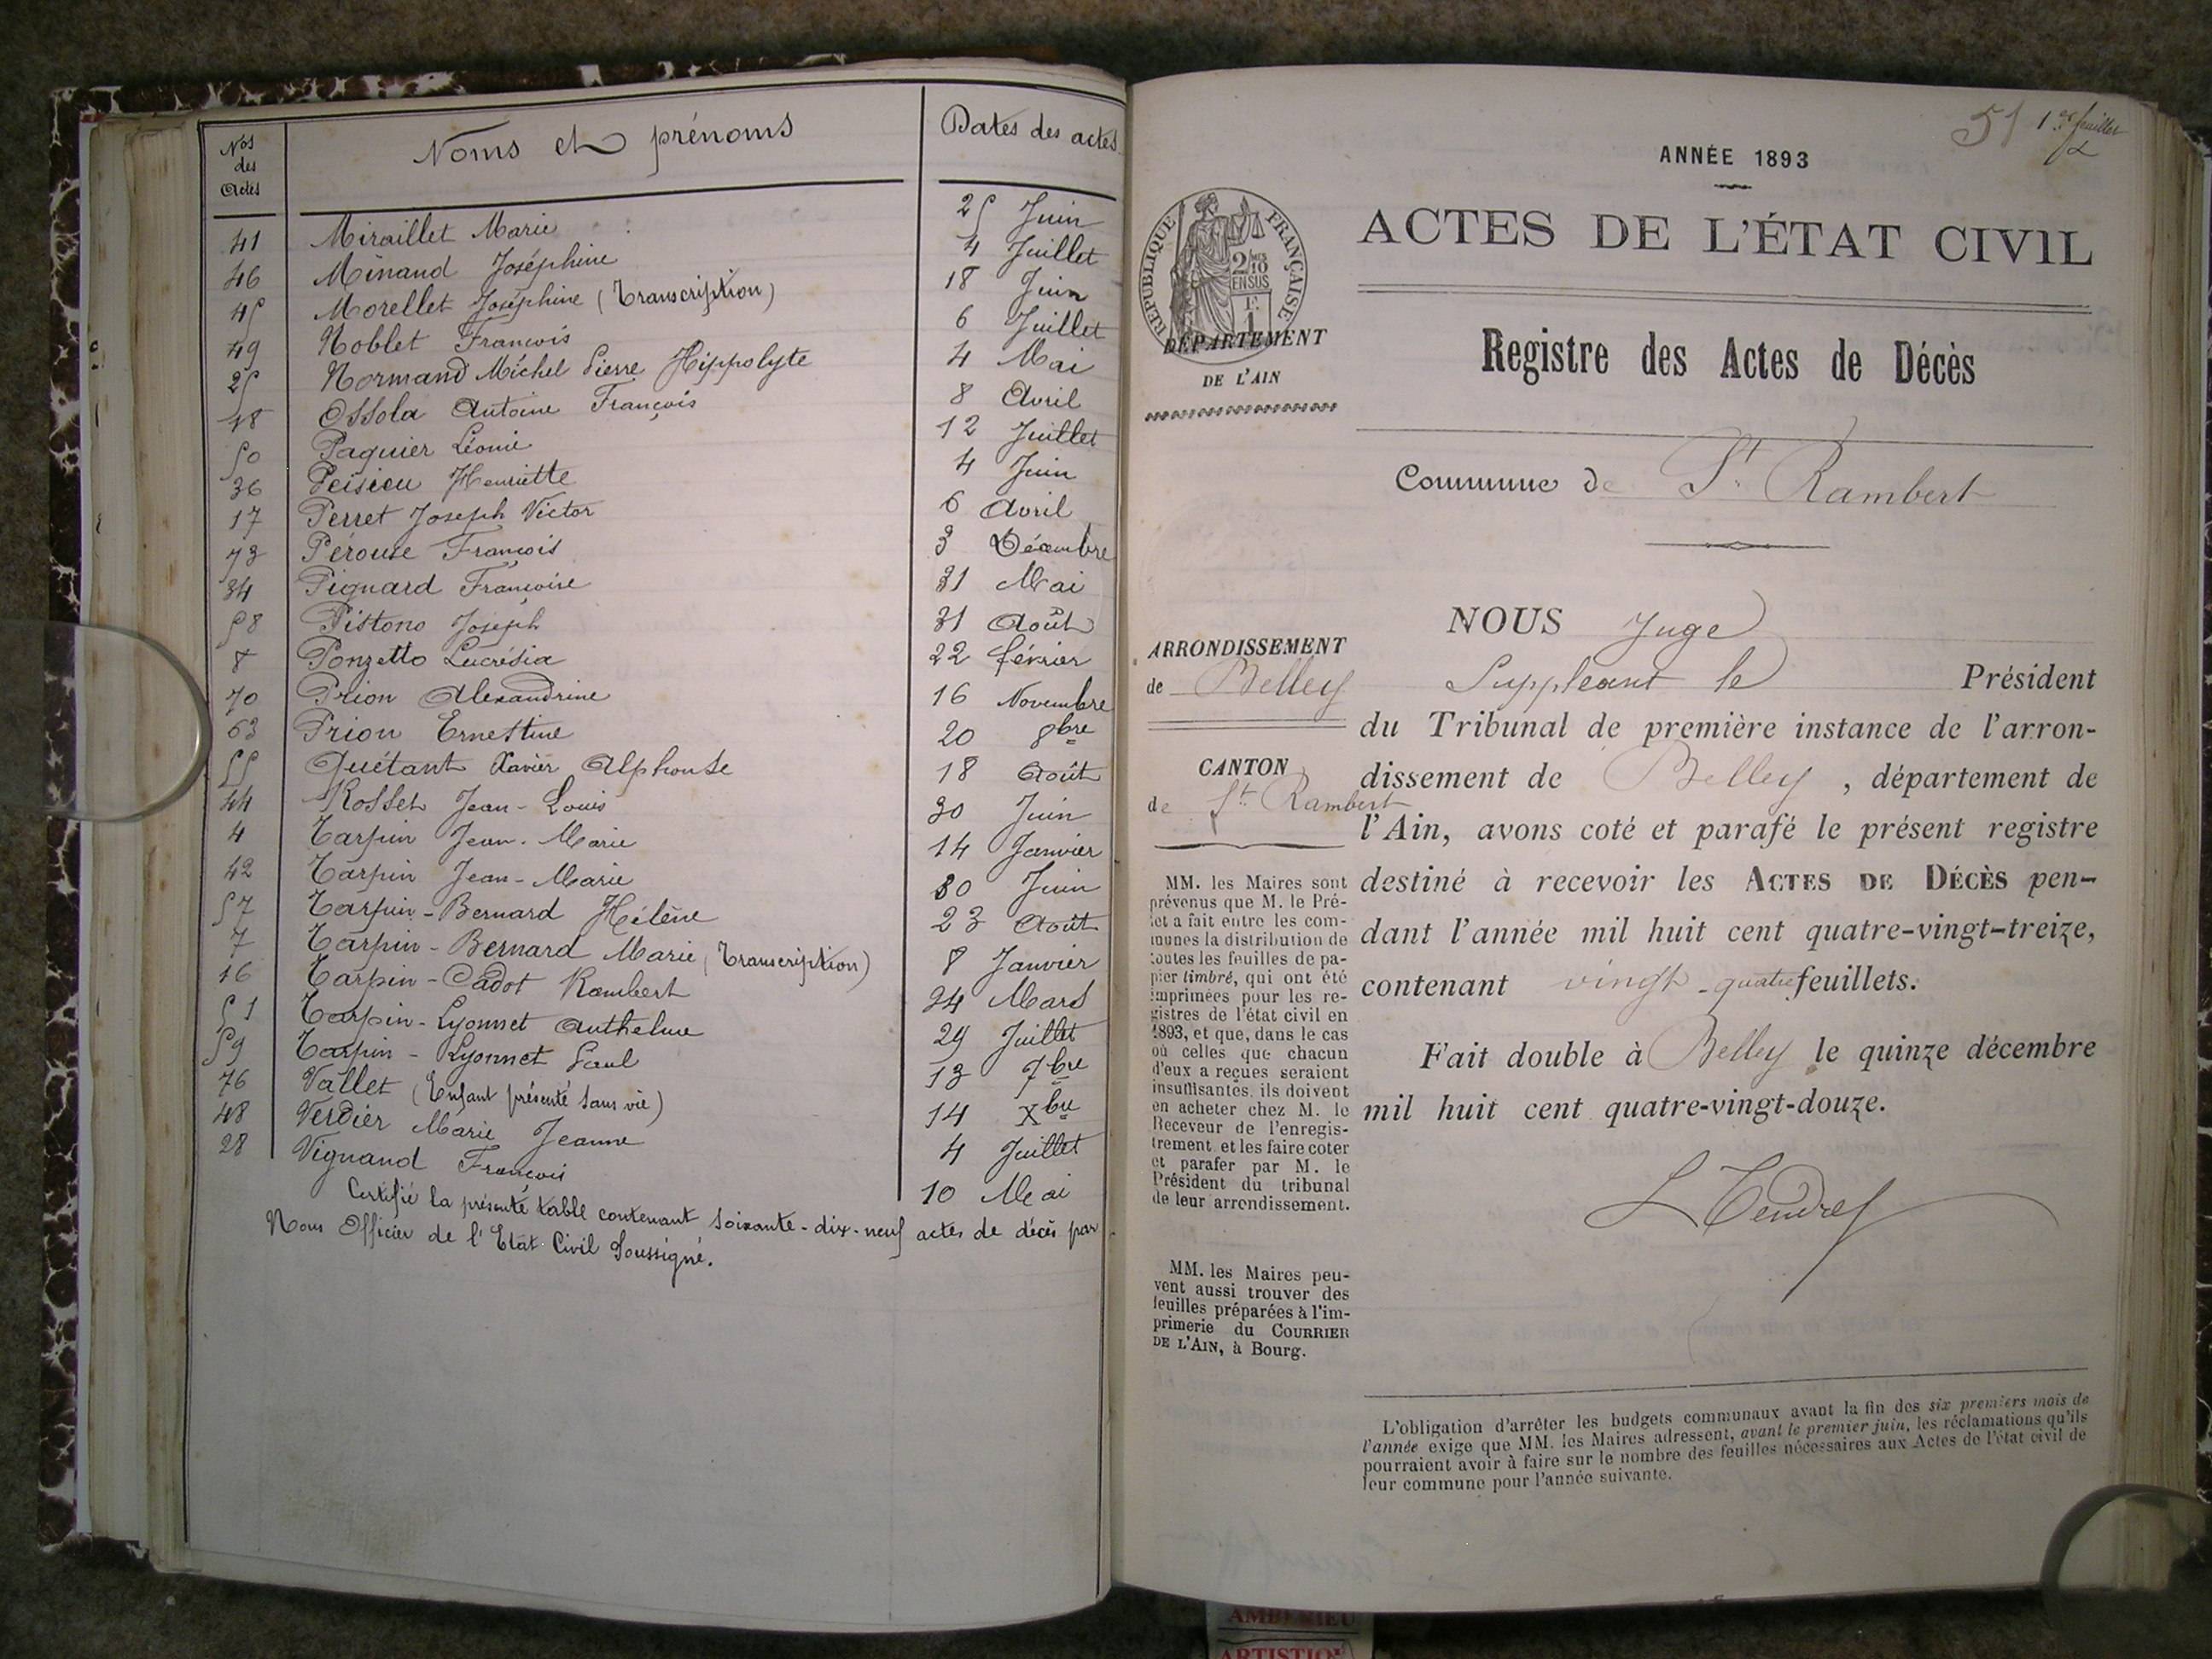 Nos des Actes Noms et prénoms Dates des actes
41 Miraillet Marie 25 Juin
46 Minand Joséphine 4 Juillet
45 Morellet Joséphine (Transcription) 18 Juin
49 Noblet François 6 Juillet
25 Normand Michel Pierre Hippolyte 4 Mai
18 Ossola Antoine François 8 Avril
50 Paquier Léonie 12 Juillet
36 Peisieu Henriette 4 Juin
17 Perret Joseph Victor 6 Avril
73 Pérouse François 3 Décembre
34 Pignard Françoise 31 Mai
58 Pistono Joseph 31 Août
8 Ponzetto Lucrésia 22 février
70 Prion Alexandrine 16 Novembre
63 Prion Ernestine 20 8bre
55 Quétant Xavier Alphonse 18 Août
44 Rosset Jean-Louis 30 Juin
4 Tarpin Jean-Marie 14 Janvier
42 Tarpin Jean-Marie 30 Juin
57 Tarpin-Bernard Hélène 23 Août
7 Tarpin-Bernard Marie (Transcription) 8 Janvier
16 Tarpin-Cadot Rambert 24 Mars
51 Tarpin-Lyonnet Anthelme 29 Juillet
59 Tarpin-Lyonnet Paul 13 7bre
76 Vallet (Enfant présenté sans vie) 14 Xbre
48 Verdier Marie Jeanne 4 Juillet
28 Vignand François 10 Mai
Certifié la présente table contenant soixante-dix-neuf actes de décès par
Nous Officier de l'Etat-Civil Soussigné.
51 1er feuillet
ANNÉE 1893
ACTES DE L'ÉTAT CIVIL
RÉPUBLIQUE FRANÇAISE
2/10 EN SUS
DÉPARTEMENT
DE L'AIN
Registre des Actes de Décès
Commune de St. Rambert
ARRONDISSEMENT
de Belley
CANTON
de St. Rambert
MM. les Maires sont
prévenus que M. le Pré-
fet a fait entre les com-
munes la distribution de
toutes les feuilles de pa-
pier timbré, qui ont été
imprimées pour les re-
gistres de l'état civil en
1893, et que, dans le cas
où celles que chacun
d'eux a reçues seraient
insuffisantes, ils doivent
en acheter chez M. le
Receveur de l'enregis-
trement et les faire coter
et parafer par M. le
Président du tribunal
de leur arrondissement.
MM. les Maires peu-
vent aussi trouver des
feuilles préparées à l'im-
primerie du COURRIER
DE L'AIN, à Bourg.
NOUS Juge
Suppléant le Président
du Tribunal de première instance de l'arron-
dissement de Belley, département de
l'Ain, avons coté et parafé le présent registre
destiné à recevoir les ACTES DE DÉCÈS pen-
dant l'année mil huit cent quatre-vingt-treize,
contenant vingt-quatre feuillets.
Fait double à Belley le quinze décembre
mil huit cent quatre-vingt-douze.
L'obligation d'arrêter les budgets communaux avant la fin des six premiers mois de
l'année exige que MM. les Maires adressent, avant le premier juin, les réclamations qu'ils
pourraient avoir à faire sur le nombre des feuilles nécessaires aux Actes de l'état civil de
leur commune pour l'année suivante.
AMBERIEU